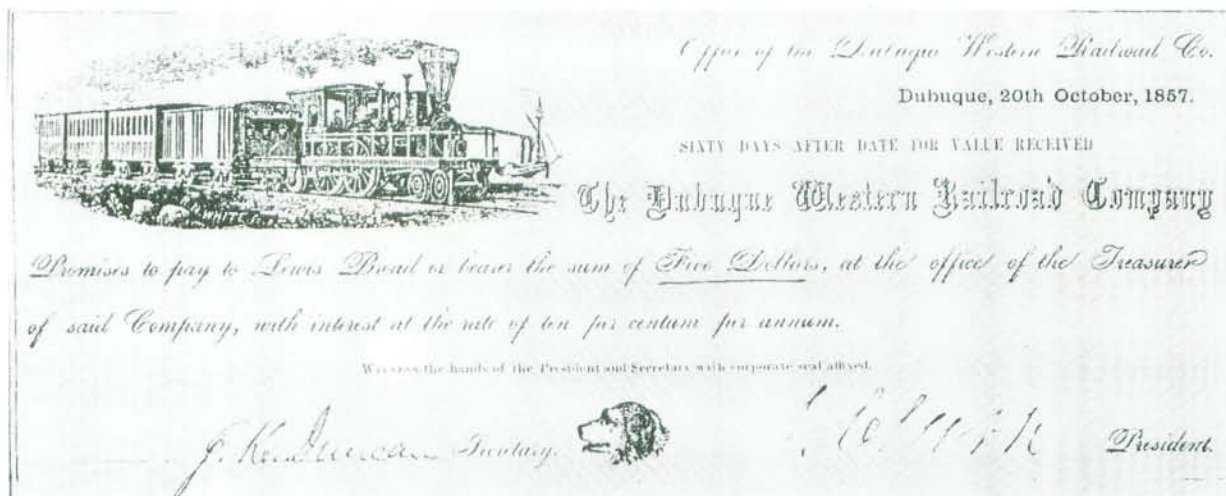 Office of the Dubuque Western Railroad Co.
Dubuque, 20th October, 1857.
SIXTY DAYS AFTER DATE FOR VALUE RECEIVED
The Dubuque Western Railroad Company
Promises to pay to Lewis Broad or bearer the sum of Five Dollars, at the office of the Treasurer
of said Company, with interest at the rate of ten per centum per annum.
Witness the hands of the President and Secretary with corporate seal affixed.
J. Ken Duncan Secretary.
President.